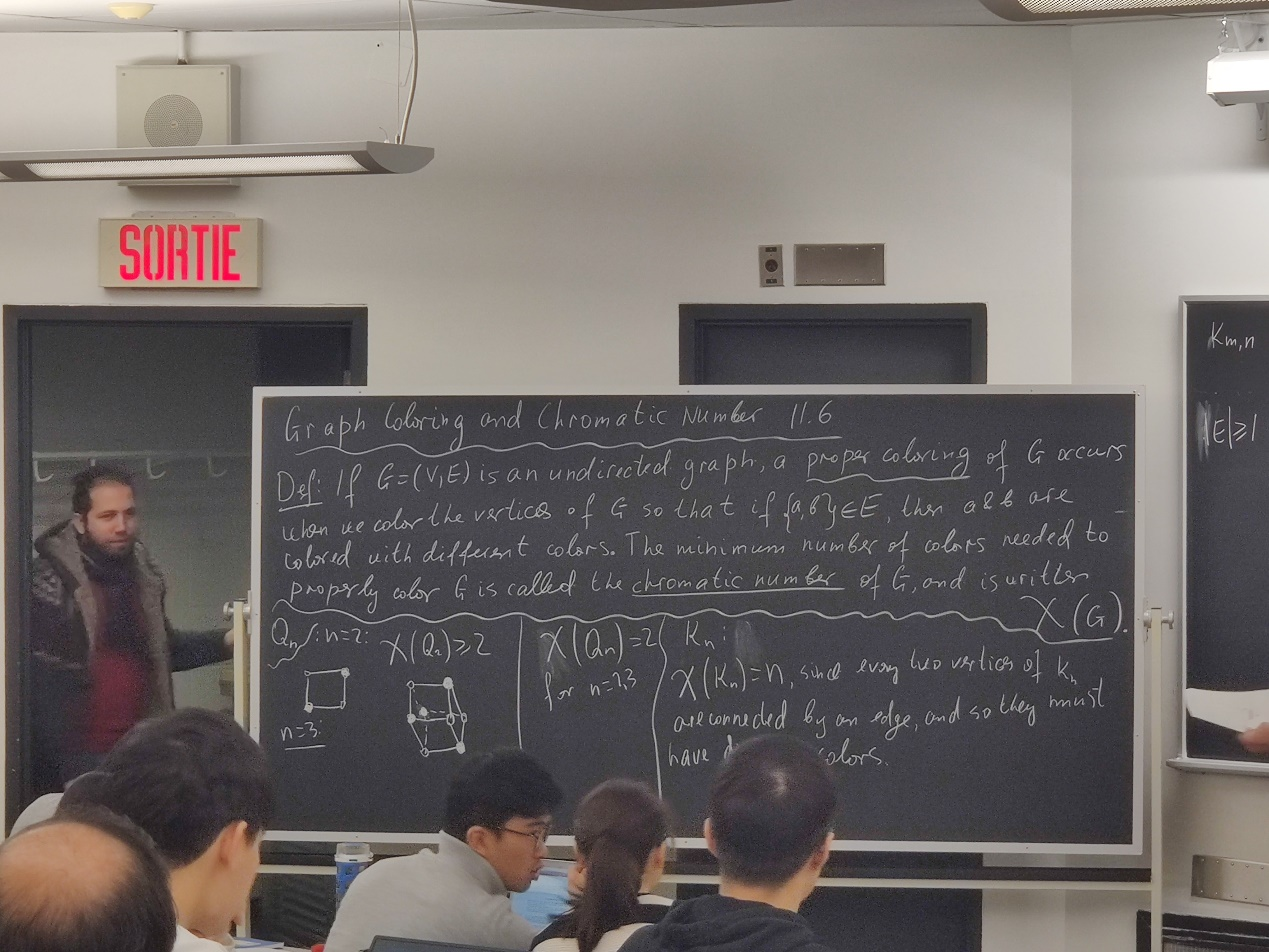 SORTIE
Graph Coloring and Chromatic Number 11.6
Def: If G=(V,E) is an undirected graph, a proper coloring of G occurs
when we color the vertices of G so that if {a,b}∈E, then a&b are
colored with different colors. The minimum number of colors needed to
properly color G is called the chromatic number of G, and is written
χ(G).
Qn: n=2: χ(Qn)≥2
n=3:
χ(Qn)=2
for n=2,3
Kn:
χ(Kn)=n, since every two vertices of Kn
are connected by an edge, and so they must
have colors.
Km,n
|E|≥1